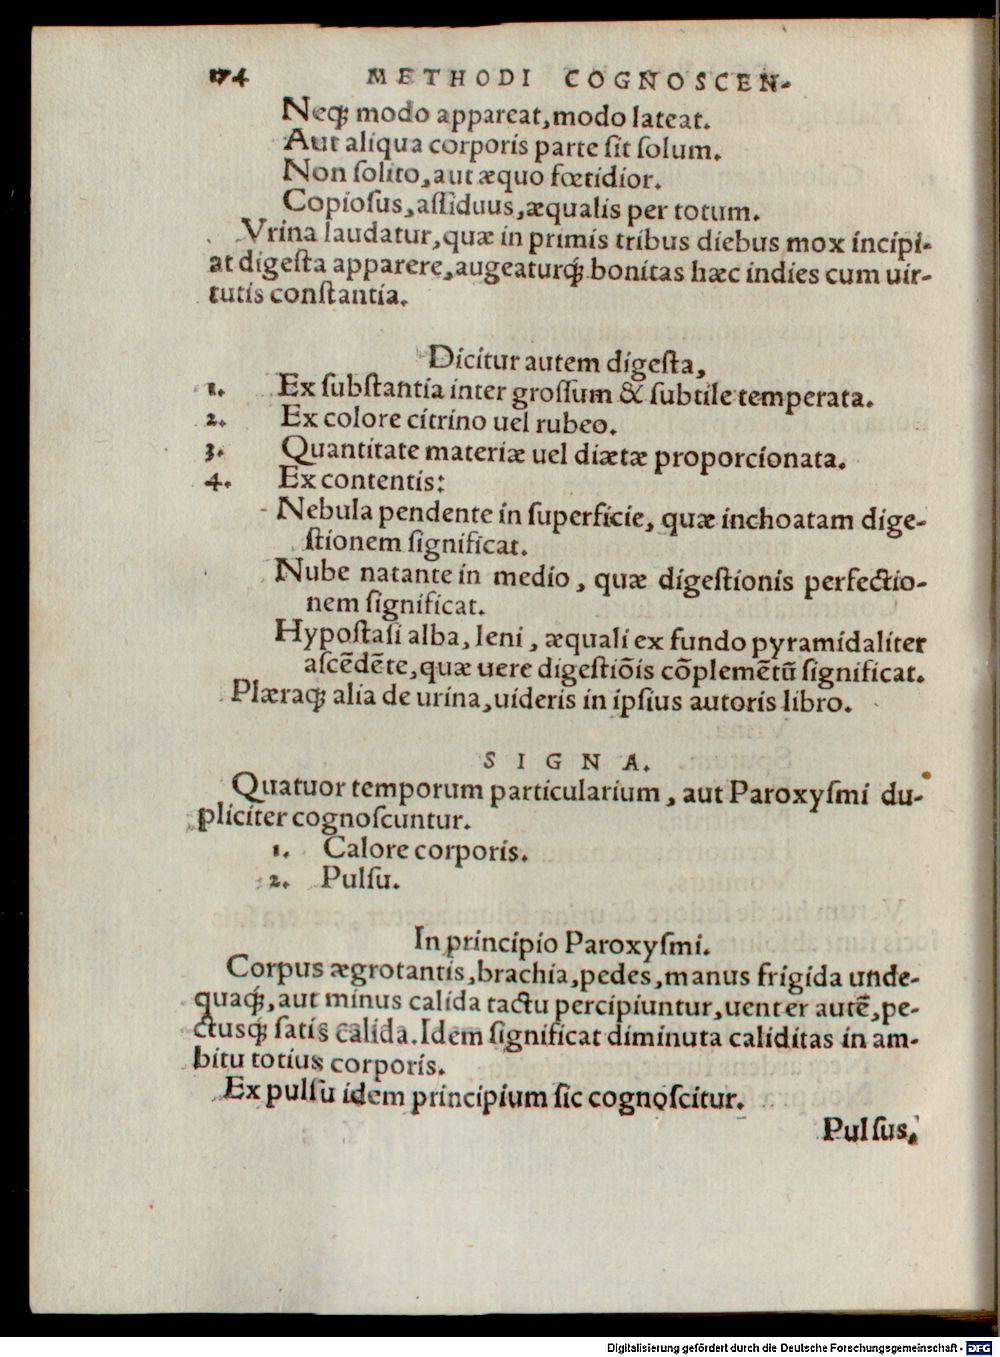 174 METHODI COGNOSCEN-
Neq; modo appareat, modo lateat.
Aut aliqua corporis parte sit solum.
Non solito, aut æquo fœtidior.
Copiosus, assiduus, æqualis per totum.
Vrina laudatur, quæ in primis tribus diebus mox incipi-
at digesta apparere, augeaturq; bonitas hæc indies cum uir-
tutis constantia.
Dicitur autem digesta,
1. Ex substantia inter grossum & subtile temperata.
2. Ex colore citrino uel rubeo.
3. Quantitate materiæ uel diætæ proporcionata.
4. Ex contentis:
Nebula pendente in superficie, quæ inchoatam dige-
stionem significat.
Nube natante in medio, quæ digestionis perfectio-
nem significat.
Hypostasi alba, leni, æquali ex fundo pyramidaliter
ascẽdẽte, quæ uere digestiõis cõplemẽtũ significat.
Plæraq; alia de urina, uideris in ipsius autoris libro.
SIGNA.
Quatuor temporum particularium, aut Paroxysmi du-
pliciter cognoscuntur.
1. Calore corporis.
2. Pulsu.
In principio Paroxysmi.
Corpus ægrotantis, brachia, pedes, manus frigida unde-
quaq;, aut minus calida tactu percipiuntur, uenter autẽ, pe-
ctusq; satis calida. Idem significat diminuta caliditas in am-
bitu totius corporis.
Ex pulsu idem principium sic cognoscitur.
Pulsus,
Digitalisierung gefördert durch die Deutsche Forschungsgemeinschaft - DFG